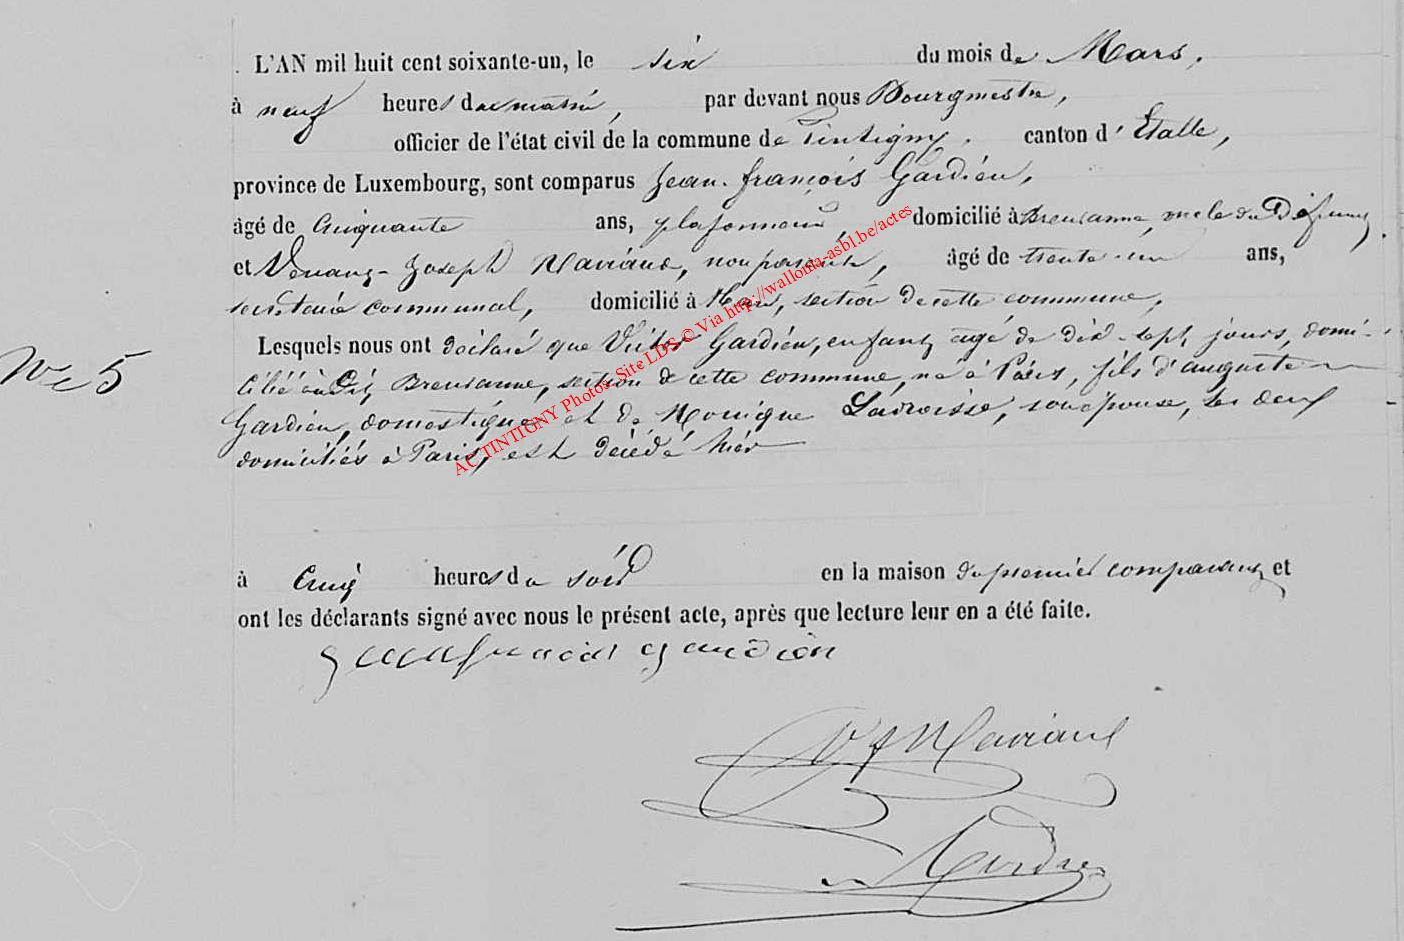 L'AN mil huit cent soixante-un, le six du mois de Mars,
à neuf heures du matin, par devant nous Bourgmestre,
officier de l'état civil de la commune de Tintigny, canton d'Étalle,
province de Luxembourg, sont comparus Jean-françois Gardien,
âgé de Cinquante ans, plafonneur, domicilié à Breuvanne, oncle du Défunt,
et Venang-Joseph Maviaux, non parent, âgé de trente-un ans,
secrétaire communal, domicilié à section de cette commune,
N° 5
Lesquels nous ont déclaré que Victor Gardien, enfant, agé de dix-sept jours, domi-
cilié à Breuvanne, section de cette commune, né à Paris, fils d'auguste
Gardien, domestique et de Monique son épouse, les deux
domiciliés à Paris, est décédé hier
à Cinq heures du soir en la maison du premier comparant et
ont les déclarants signé avec nous le présent acte, après que lecture leur en a été faite.
Jean françois gardien
VJ Maviaux
ACTINTIGNY Photos Site LDS © Via http://wallonia-asbl.be/actes